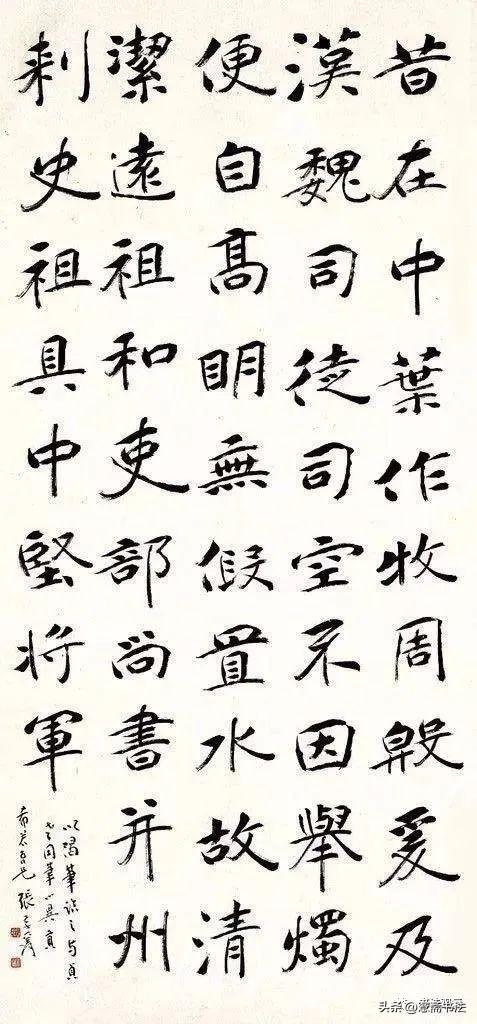 昔在中葉作牧周殷爰及
漢魏司徒司空不因舉燭
便自高明無假置水故清
潔遠祖和吏部尚書并州
刺史祖具中堅將軍
張
头条@憲斋书法